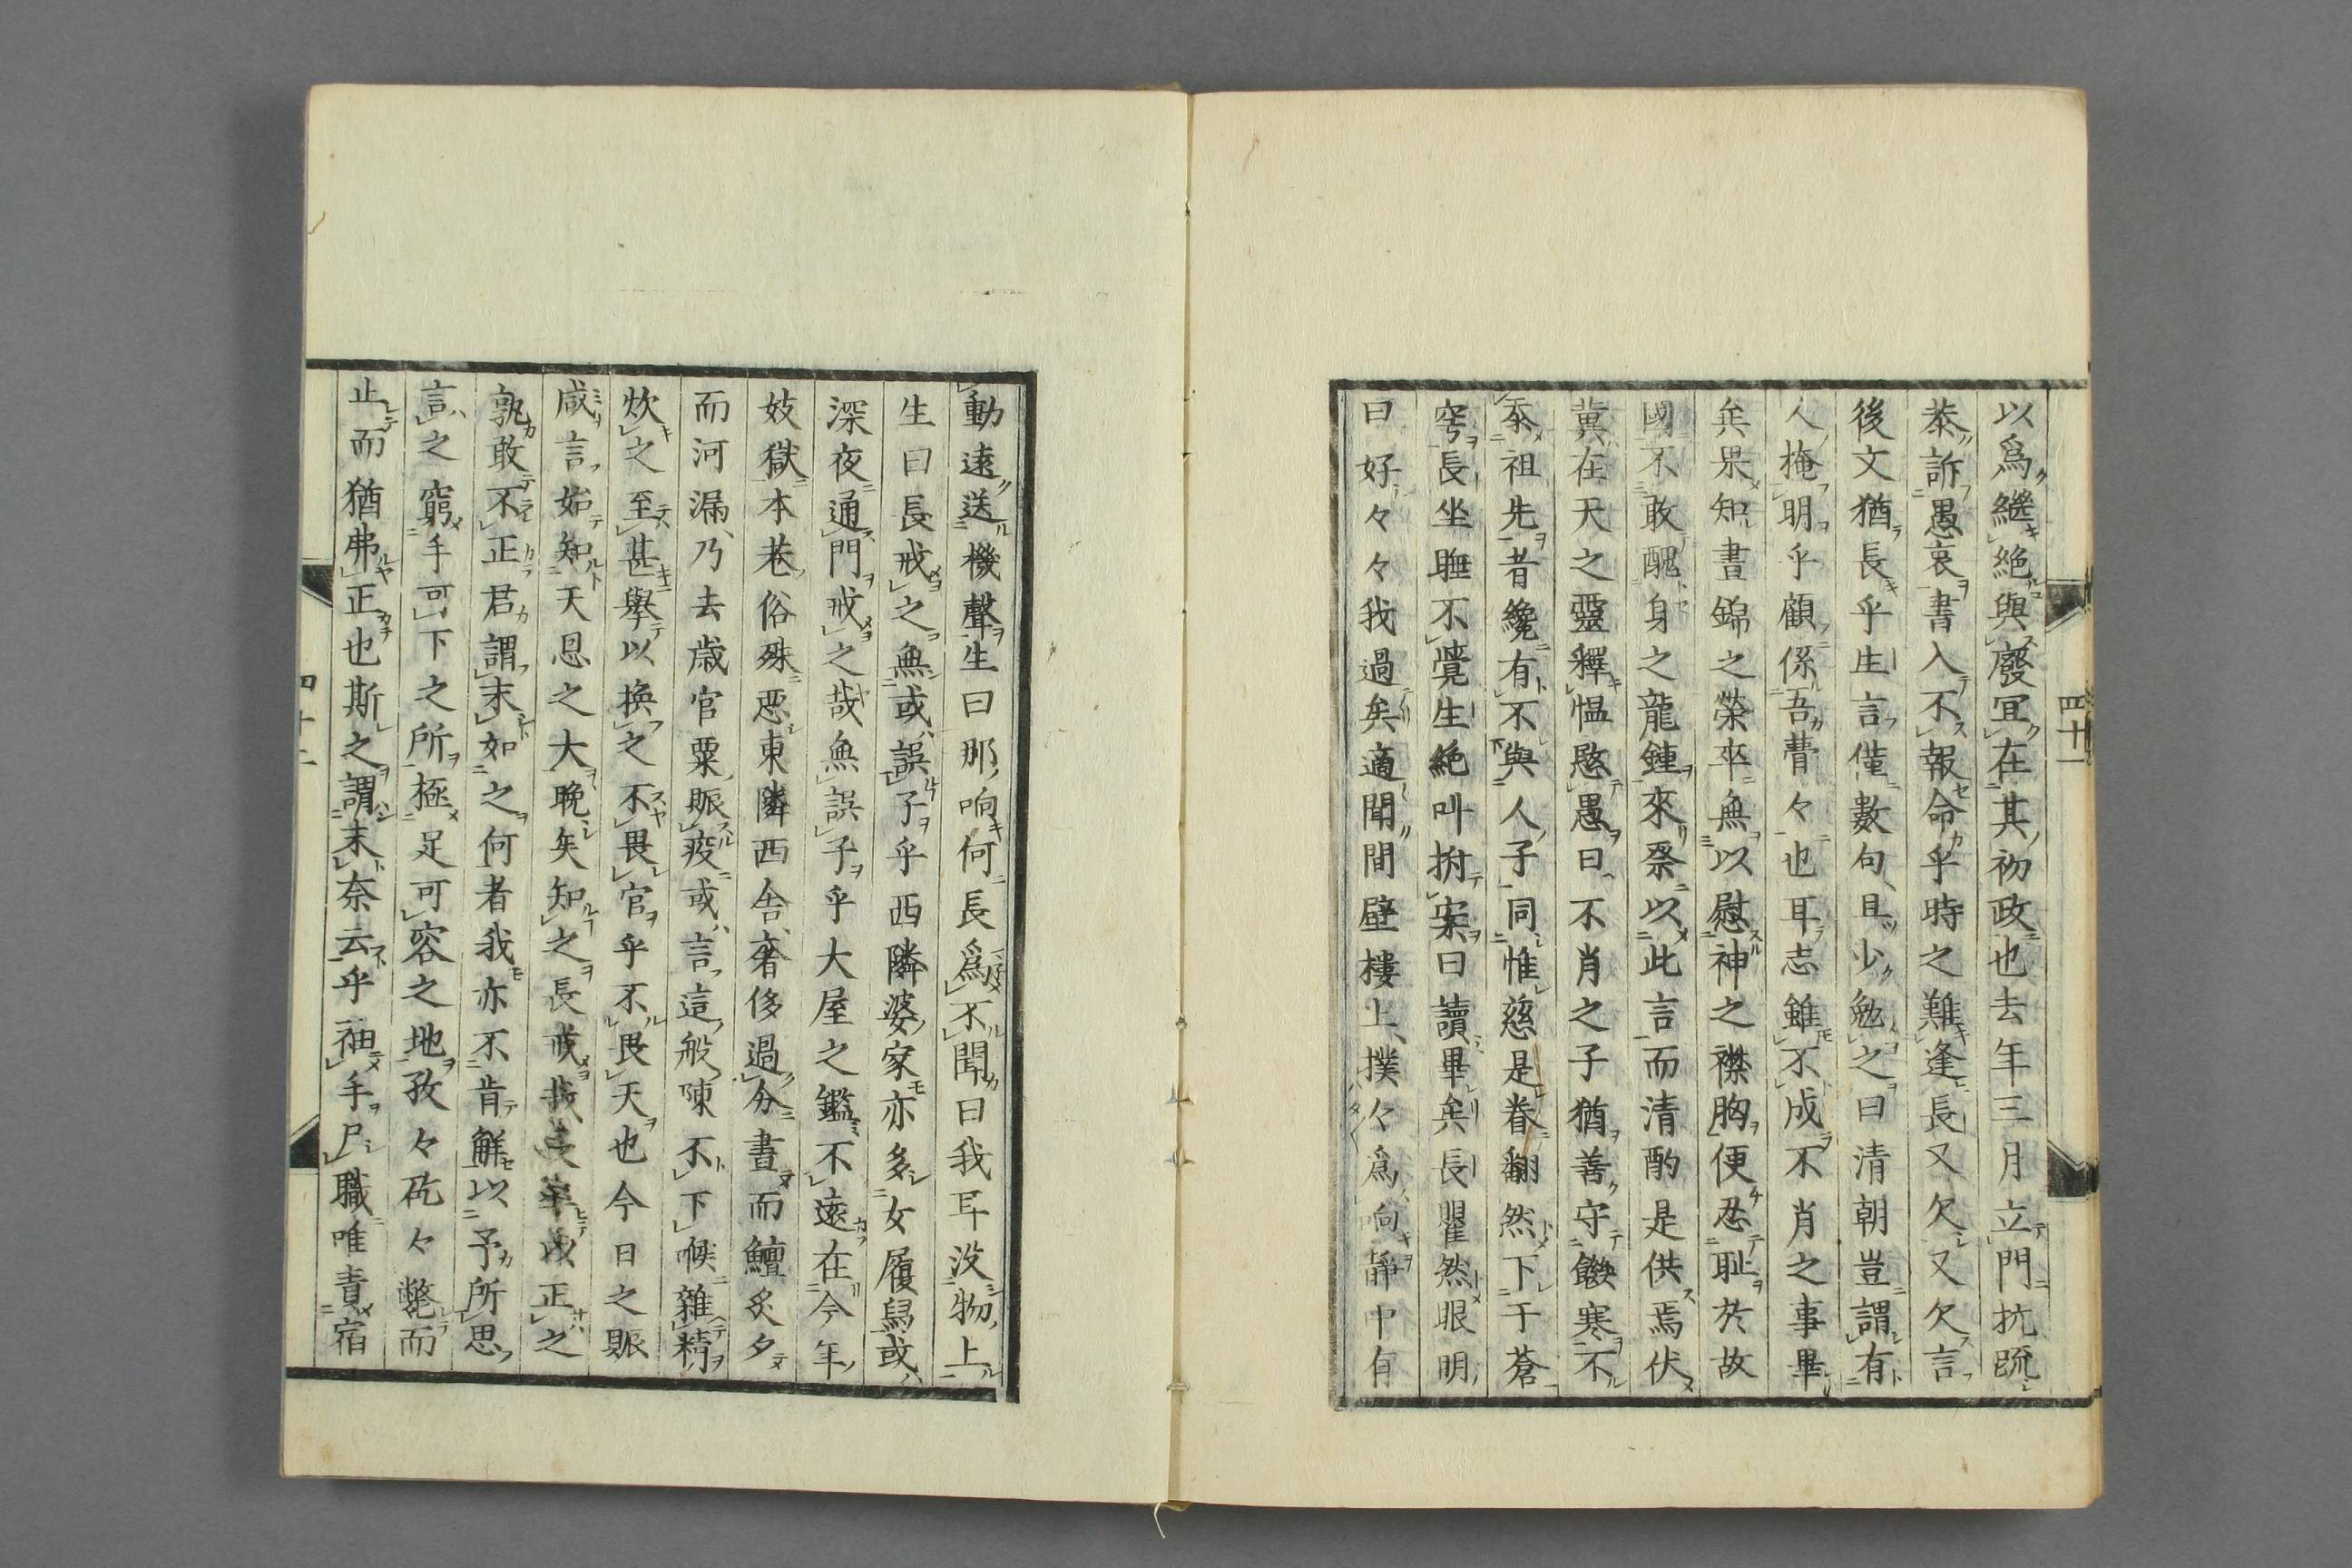 以爲繼絶與廢宜在其初政也去年三月立門抗疏
泰訴愚哀書入不報命乎時之難逢長又欠又欠言
後文猶長乎生言僅數句且少勉之曰清朝豈謂有
人掩明乎顧係吾瞢々也耳志雖不成不肖之事畢
矣果知晝錦之榮卒無以慰神之襟胸便忍耻於故
國不敢醜身之龍鍾來祭以此言而清酌是供焉伏
冀在天之靈釋愠愍愚曰不肖之子猶善守餓寒不
忝祖先者纔有不與人子同惟慈是眷翻然下于蒼
穹長坐睡不覺生絶叫拊案曰讀畢矣長瞿然眼明
曰好々々我過矣適聞間壁樓上撲々爲向靜中有
四十一
動遠送機聲生曰那响何長爲不聞曰我耳没物上
生曰長戒之無或誤子乎西隣婆家亦多女履舄或
深夜通門戒之哉無誤子乎大屋之鑑不遠在今年
妓獄本巷俗殊惡東隣西舎奢侈過分晝而鱣炙夕
而河漏乃去歳官粟賑疫或言這般陳不下喉雜精
炊之至甚擧以換之不畏官乎不畏天也今日之賑
咸言始知天恩之大晩矣知之長戒哉率以正之
孰敢不正君謂末如之何者我亦不肯解以予所思
言之窮乎可下之所極足可容之地孜々矻々斃而
止而猶弗正也斯之謂末奈云乎袖手尸職唯責宿
四十二